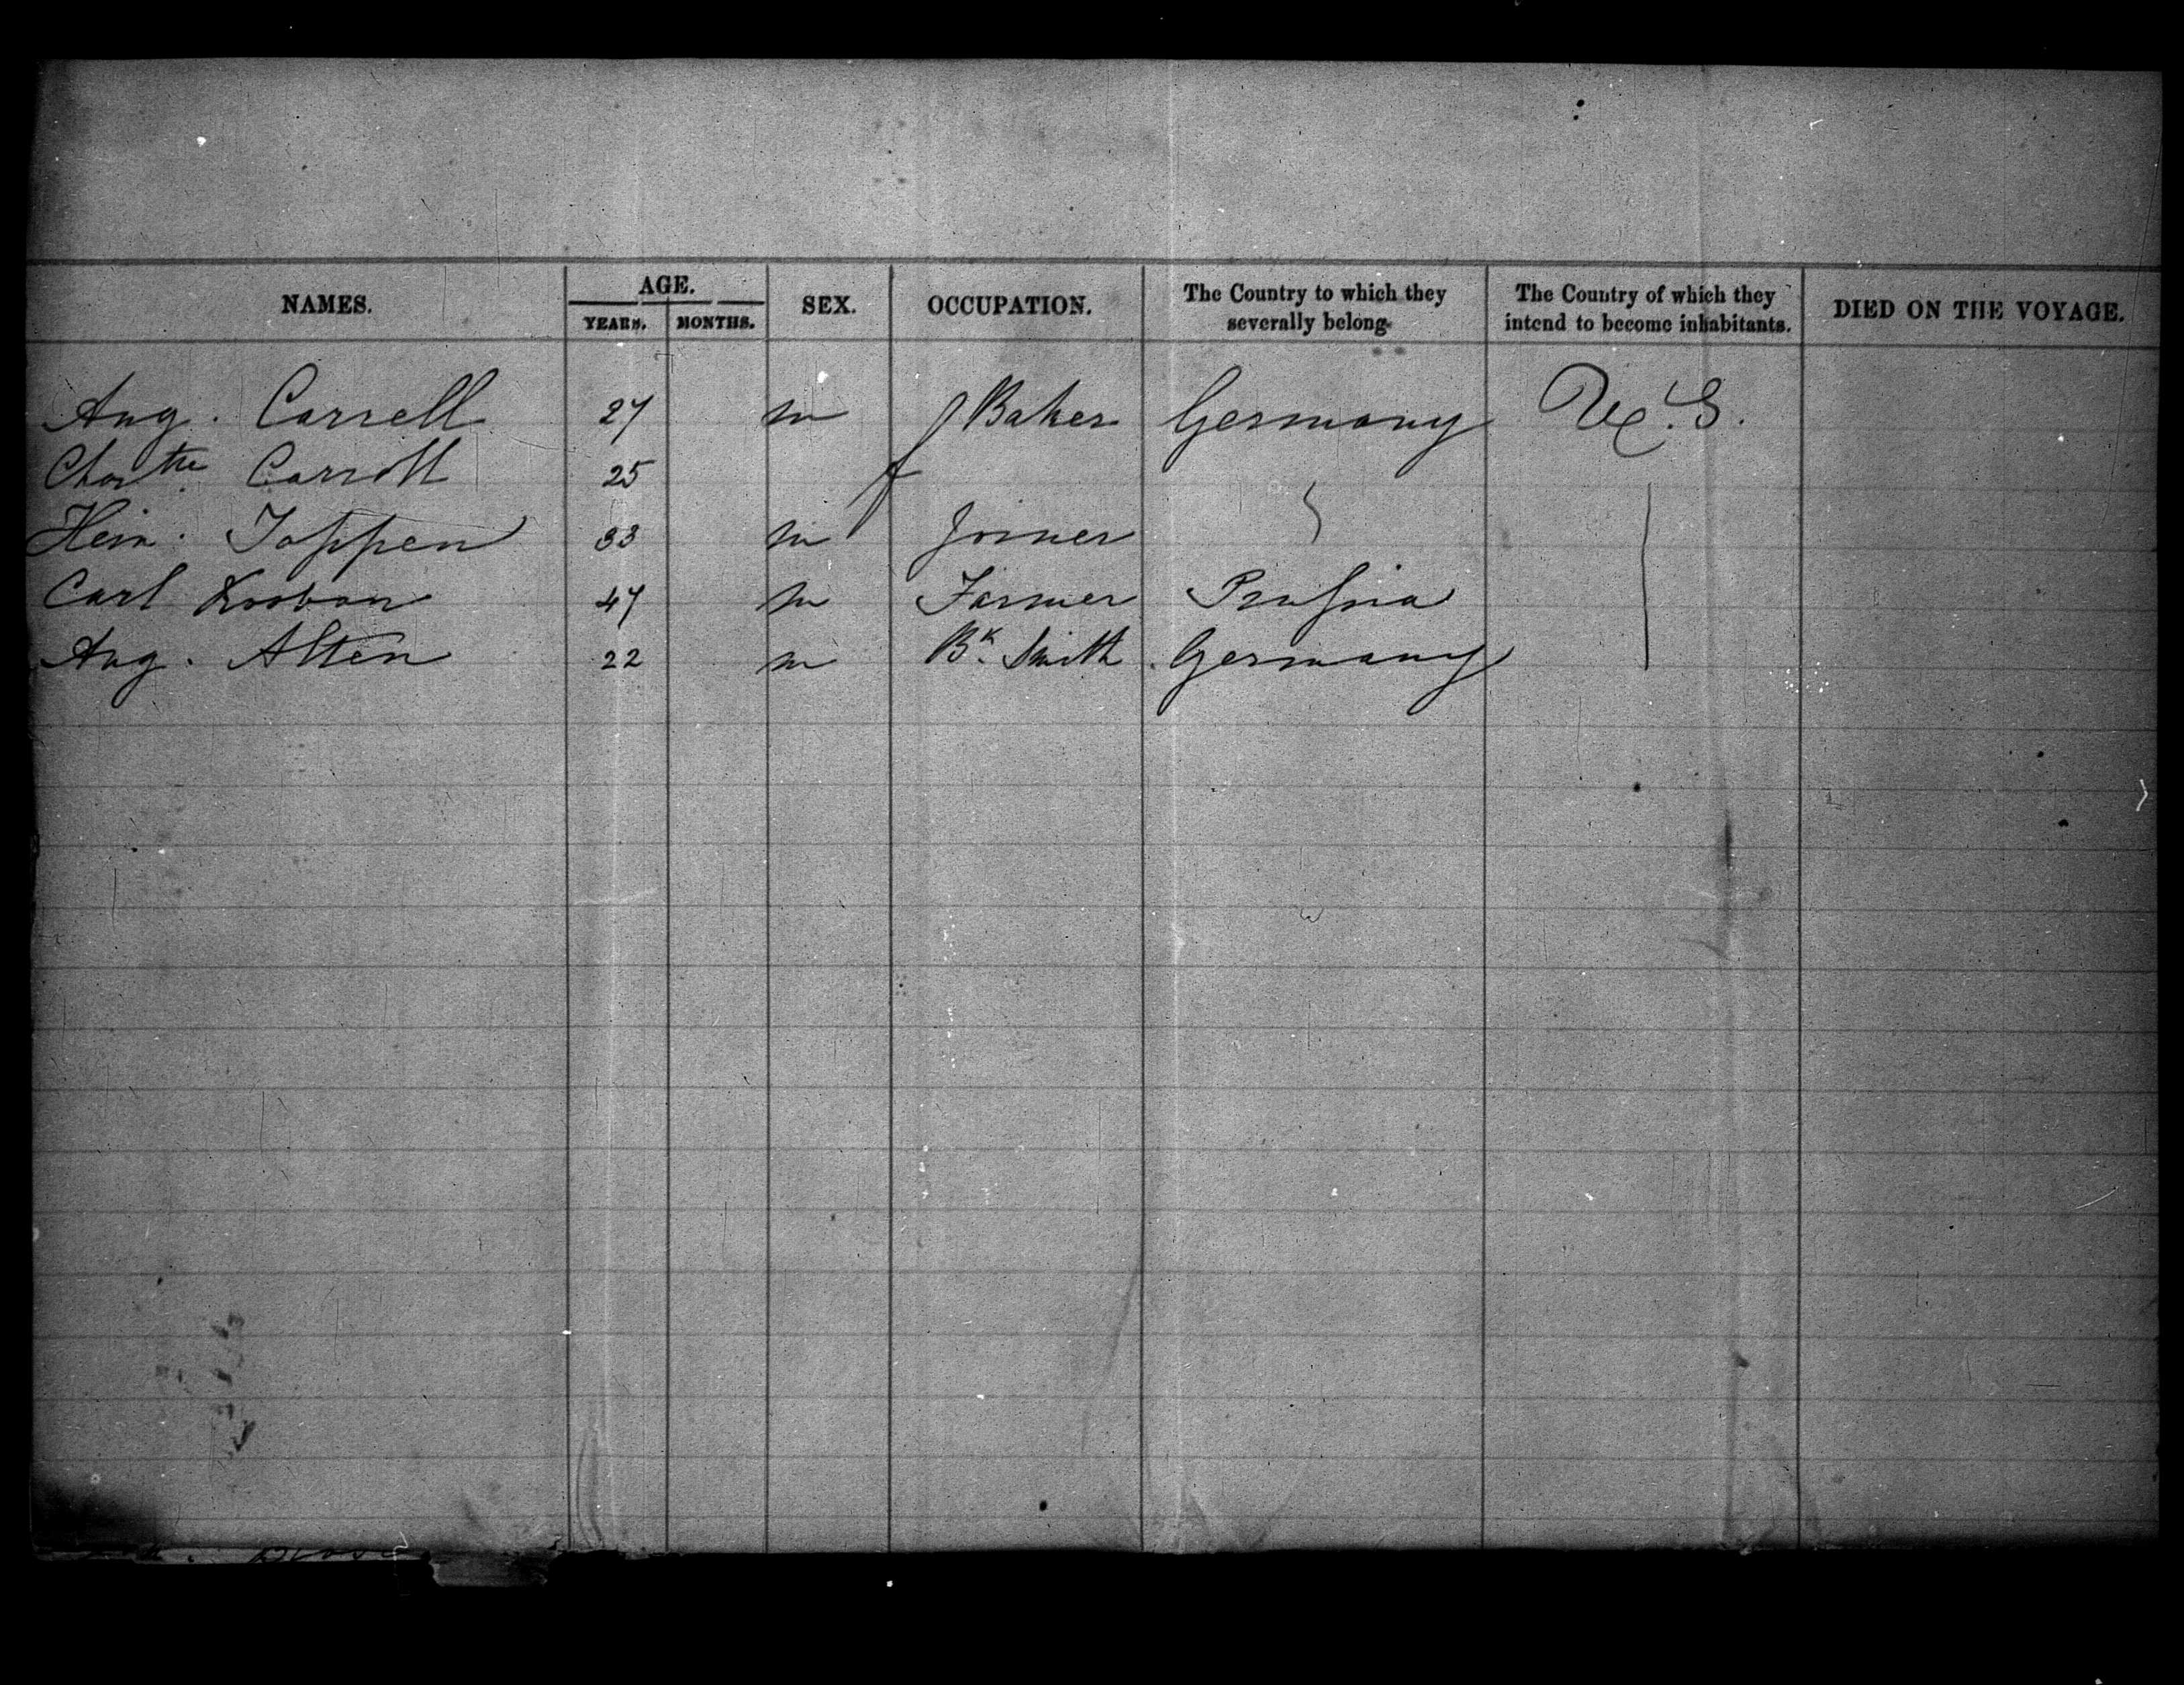 NAMES. AGE. SEX. OCCUPATION. The Country to which they severally belong. The Country of which they intend to become inhabitants. DIED ON THE VOYAGE.
YEARS. MONTHS.
Aug. Carrell 27 m Baker Germany U.S.
Carroll 25 f
Hein. Toppen 33 m Joiner
Carl 47 m Farmer Prussia
Aug. Alten 22 m Bk. Smith Germany